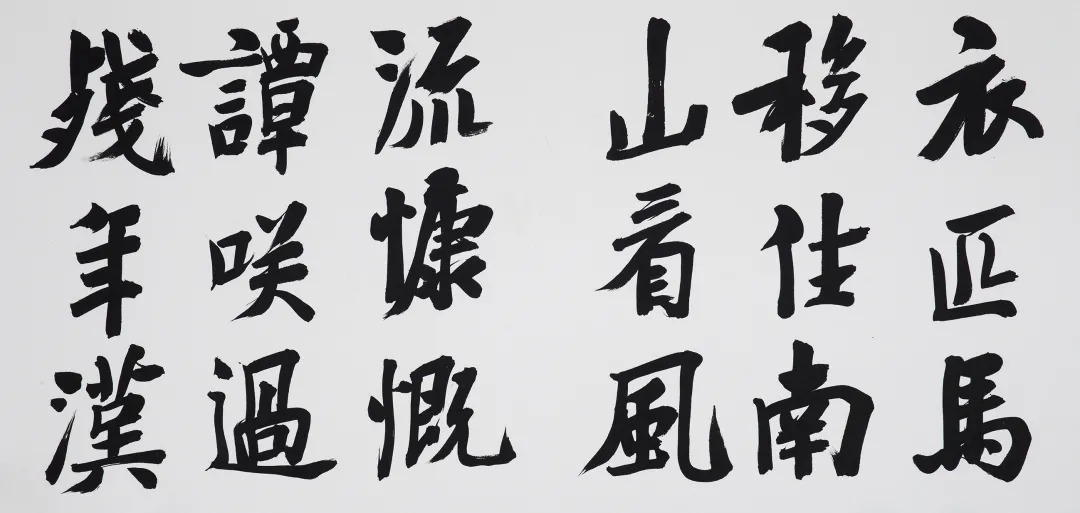 衣匹馬
移住南
山看風
流慷慨
譚咲過
殘年漢